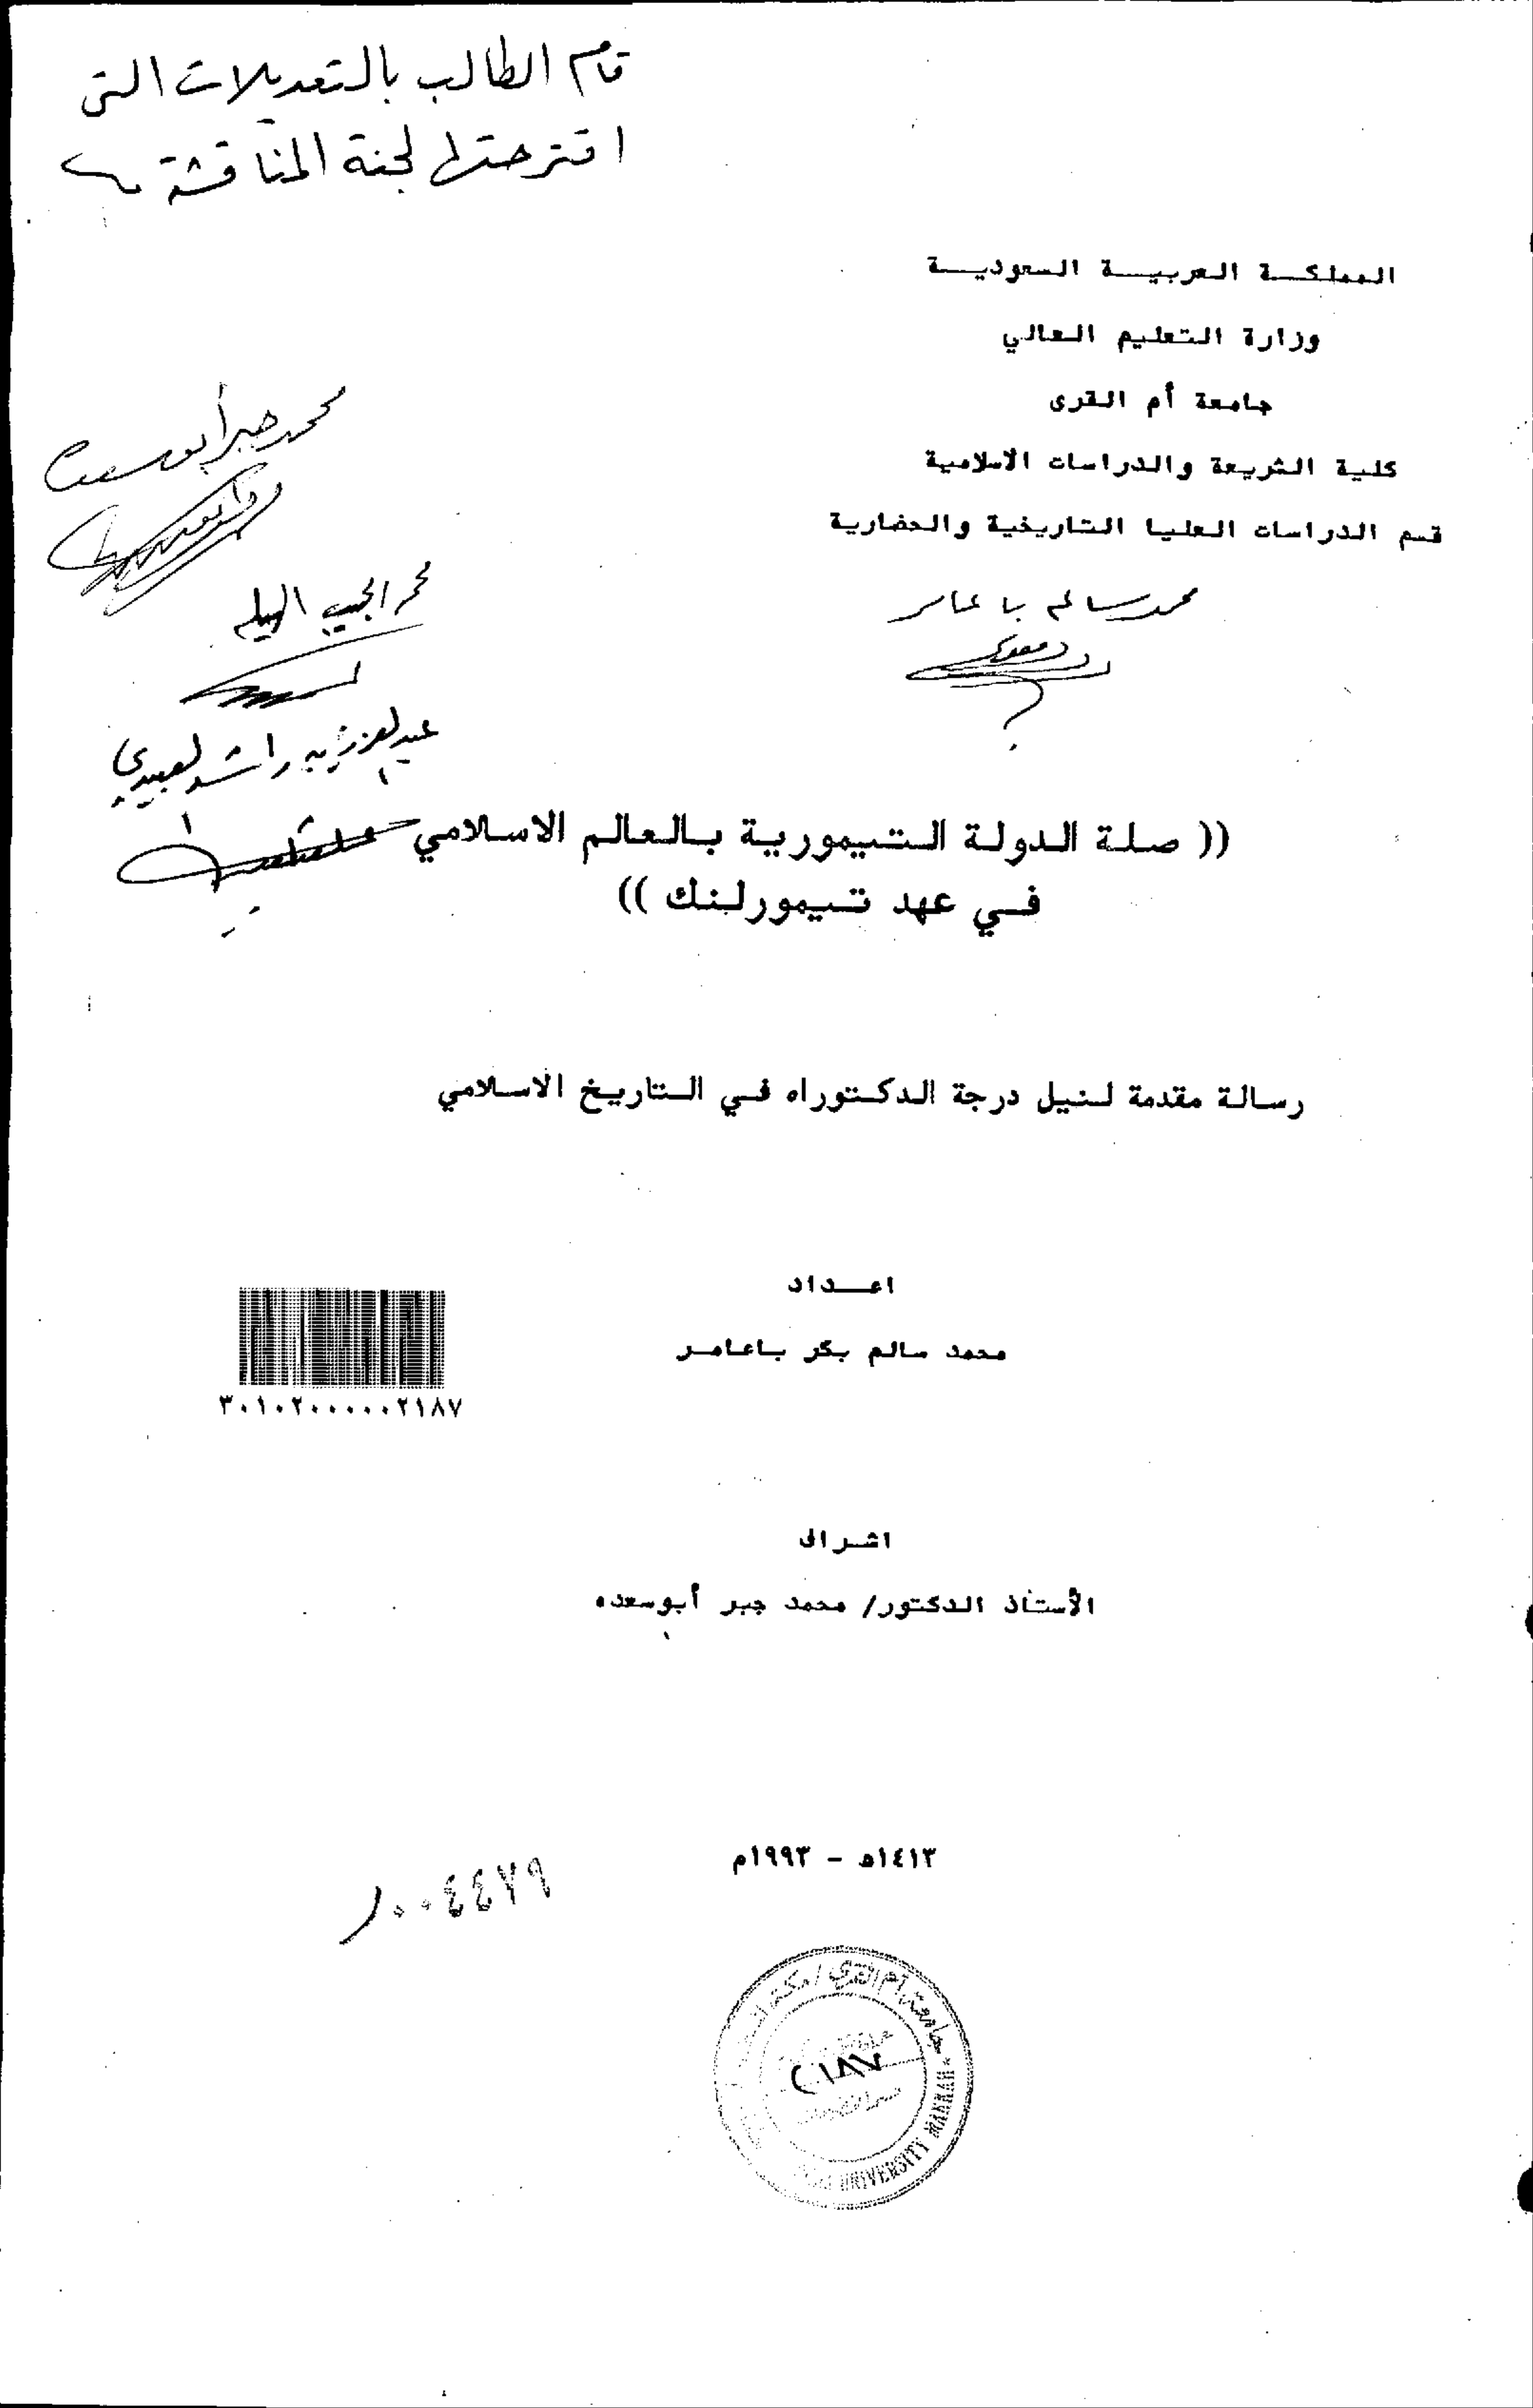 قام الطالب بالتعديلات التى
اقترحتها لجنة المناقشة
المملكة العربية السعودية
وزارة التعليم العالي
جامعة أم القرى
كلية الشريعة والدراسات الاسلامية
قسم الدراسات العليا التاريخية والحضارية
محمد سالم با عامر
محمد جبر أبو سعده
محمد الحبيب الهيلة
عبدالعزيز بن راشد العبيدي
(( صلة الدولة التيمورية بالعالم الاسلامي
في عهد تيمورلنك ))
رسالة مقدمة لنيل درجة الدكتوراه في التاريخ الاسلامي
اعداد
محمد سالم بكر باعامر
٣٠١٠٢٠٠٠٠٠٢١٨٧
اشراف
الأستاذ الدكتور/ محمد جبر أبوسعده
١٤١٣ه - ١٩٩٣م
٠٠٤٤٧٩
جامعة أم القرى / مكة
٢١٨٧
UNIVERSITY MAKKAH